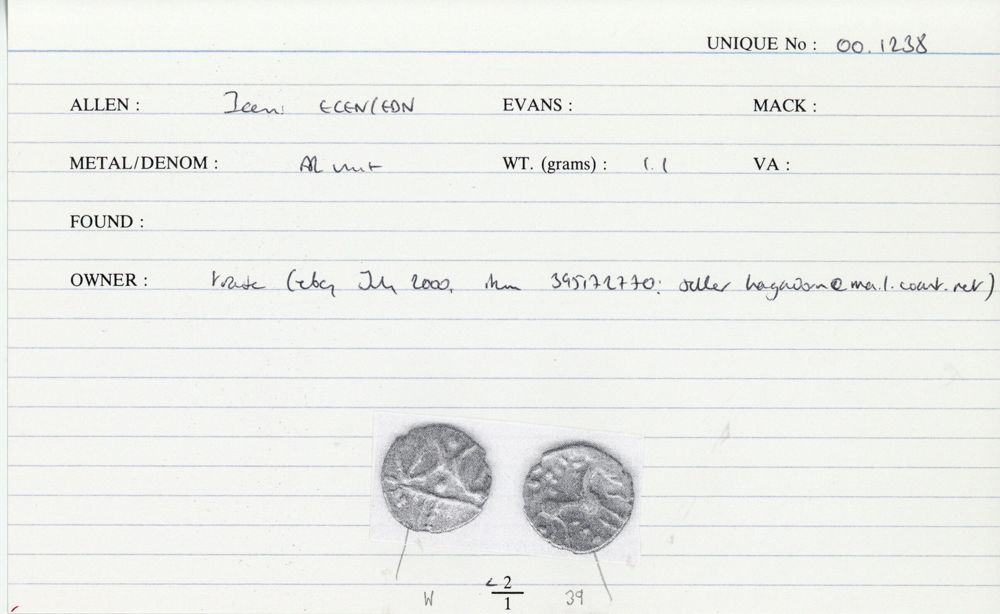 UNIQUE No : 00.1238
ALLEN : Iceni ECEN/EDN EVANS : MACK :
METAL/DENOM : AR unit WT. (grams) : 1.1 VA :
FOUND :
OWNER : trade (ebay July 2000, item 395172770: seller @mail.coart.net)
W 2/1 39